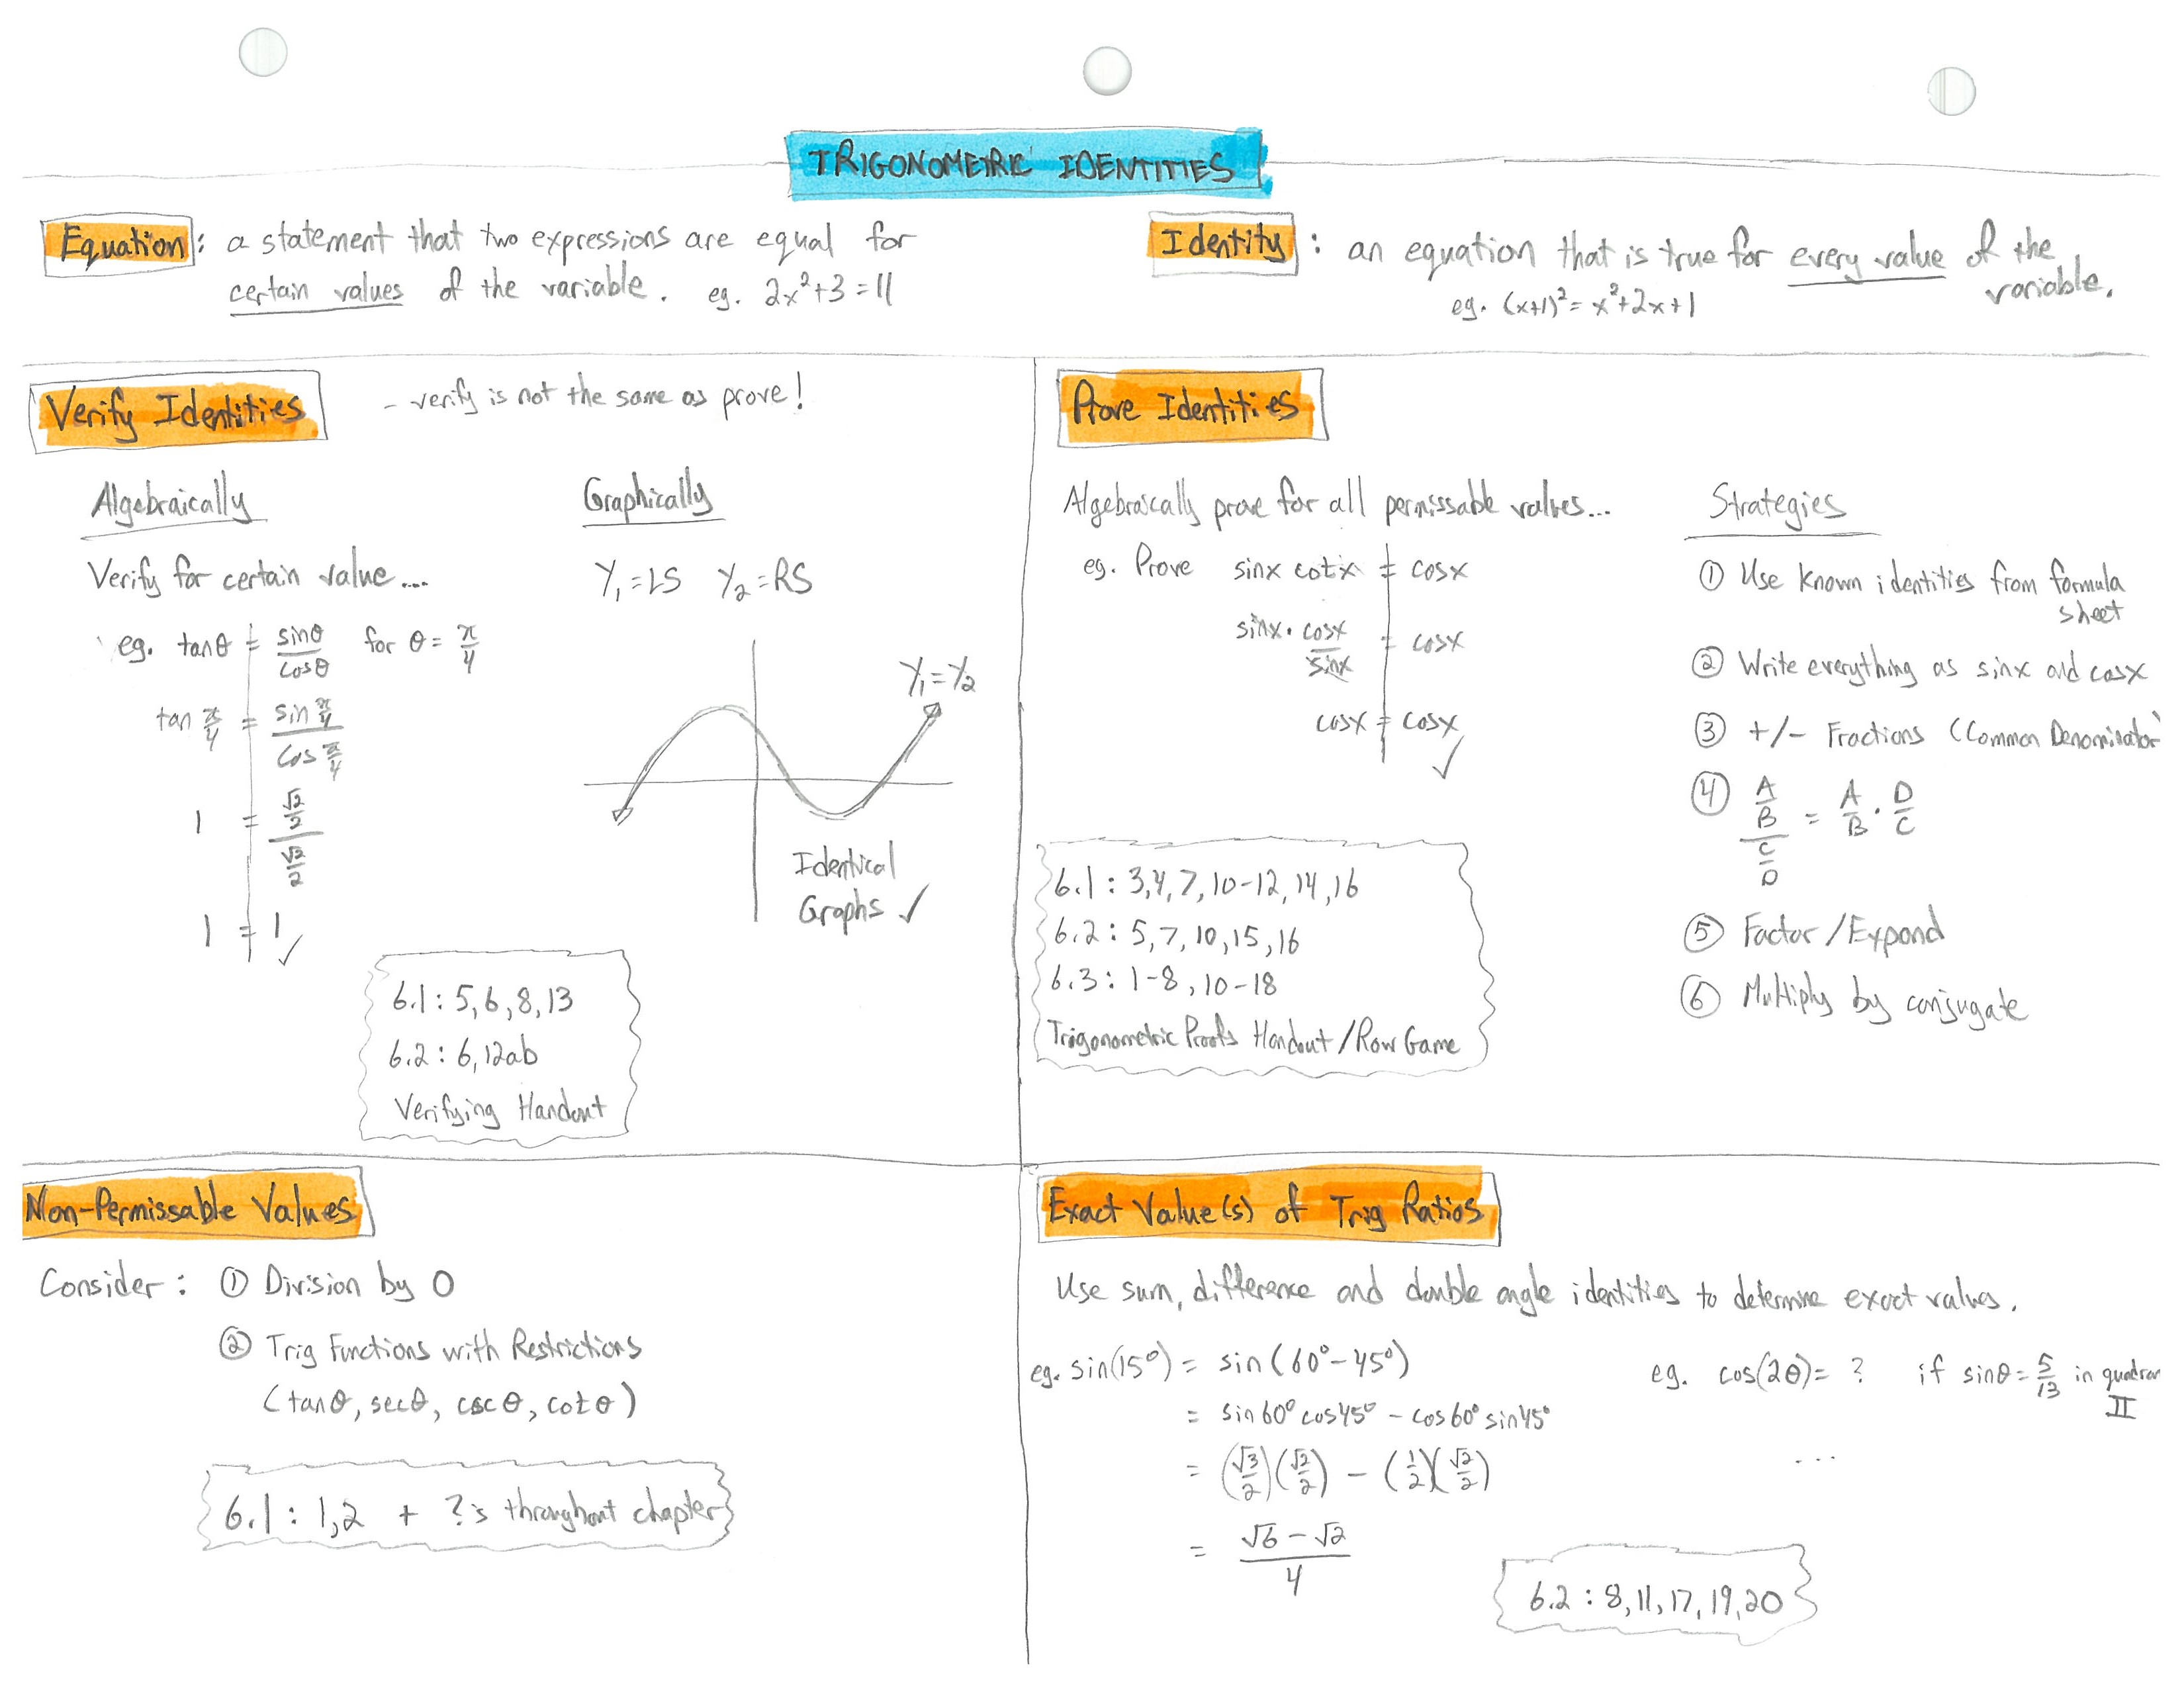 TRIGONOMETRIC IDENTITIES
Equation : a statement that two expressions are equal for
certain values of the variable. eg. 2x²+3=11
Identity : an equation that is true for every value of the
variable.
eg. (x+1)²=x²+2x+1
Verify Identities
- verify is not the same as prove!
Algebraically
Verify for certain value....
eg. tanθ = sinθ/cosθ for θ = π/4
tan π/4 = sin π/4 / cos π/4
1 = √2/2 / √2/2
1 = 1 ✓
Graphically
Y₁=LS Y₂=RS
Y₁=Y₂
Identical
Graphs ✓
6.1 : 5,6,8,13
6.2 : 6,12ab
Verifying Handout
Prove Identities
Algebraically prove for all permissable values...
eg. Prove sinx cotx = cosx
sinx · cosx/sinx = cosx
cosx = cosx
✓
6.1 : 3,4,7,10-12,14,16
6.2 : 5,7,10,15,16
6.3 : 1-8,10-18
Trigonometric Proofs Handout/Row Game
Strategies
① Use known identities from formula
sheet
② Write everything as sinx and cosx
③ +/- Fractions (Common Denominator)
④ A/B / C/D = A/B · D/C
⑤ Factor/Expand
⑥ Multiply by conjugate
Non-Permissable Values
Consider : ① Division by 0
② Trig Functions with Restrictions
(tanθ, secθ, cscθ, cotθ)
6.1 : 1,2 + ?'s throughout chapter
Exact Value(s) of Trig Ratios
Use sum, difference and double angle identities to determine exact values.
eg. sin(15°) = sin(60°-45°)
= sin60°cos45° - cos60°sin45°
= (√3/2)(√2/2) - (1/2)(√2/2)
= √6-√2 / 4
eg. cos(2θ)= ? if sinθ = 5/13 in quadran
II
...
6.2 : 8,11,17,19,20